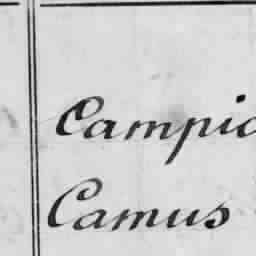 Campio
Camus